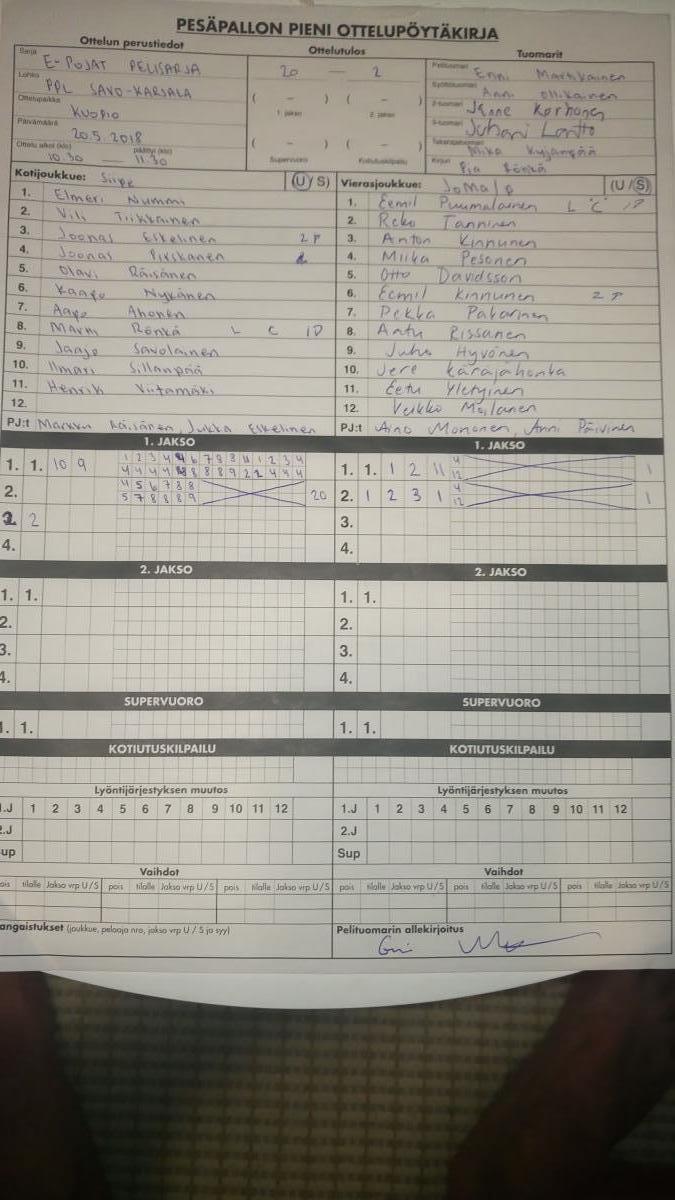 PESÄPALLON PIENI OTTELUPÖYTÄKIRJA
Ottelun perustiedot Ottelutulos Tuomarit
Sarja E-POJAT PELISARJA 20 — 2 Pelituomari Enni Martikainen
Lohko PPL SAVO-KARJALA ( – ) ( – ) Syöttötuomari Anni Ollikainen
1. jakso 2. jakso
Ottelupaikka KUOPIO 2-tuomari Janne Korhonen
Päivämäärä 20.5.2018 ( – ) ( – ) 3-tuomari Juhani Lantto
Ottelu alkoi (klo) 10.30 — päättyi (klo) 11.30 Supervuoro Kotiutuskilpailu Takarajatuomari Mika
Kirjuri Pia Rönkä
Kotijoukkue: Siipe (U/S) Vierasjoukkue: JoMaLp (U/S)
1. Elmeri Nummi 1. Eemil Puumalainen L C 1P
2. Vili Tiikkainen 2. Reko Tanninen
3. Joonas Eskelinen 2P 3. Anton Kinnunen
4. Joonas Pirskanen 4. Miika Pesonen
5. Olavi Räisänen 5. Otto Davidsson
6. Nykänen 6. Eemil Kinnunen 2P
7. Aapo Ahonen 7. Pekka Pakarinen
8. Rönkä L C 1P 8. Antu Rissanen
9. Jaajo Savolainen 9. Juho Hyvönen
10. Ilmari Sillanpää 10. Jere Karajahonka
11. Henrik Viitamäki 11. Eetu Yletyinen
12. 12. Veikko Moilanen
PJ:t Markku Räisänen, Jukka Eskelinen PJ:t Aino Mononen, Anni Päivinen
1. JAKSO 1. JAKSO
1. 1. 10 9 1 2 3 4 4 6 7 8 8 11 1 2 3 4 1. 1. 1 2 11 4 1
4 4 4 4 8 8 8 9 2 2 4 4 4 12
2. 4 5 6 7 8 8 20 2. 1 2 3 1 4 1
5 7 8 8 8 9 12
3. 2 3.
4. 4.
2. JAKSO 2. JAKSO
1. 1. 1. 1.
2. 2.
3. 3.
4. 4.
SUPERVUORO SUPERVUORO
1. 1. 1. 1.
KOTIUTUSKILPAILU KOTIUTUSKILPAILU
Lyöntijärjestyksen muutos Lyöntijärjestyksen muutos
1.J 1 2 3 4 5 6 7 8 9 10 11 12 1.J 1 2 3 4 5 6 7 8 9 10 11 12
2.J 2.J
up Sup
Vaihdot Vaihdot
ois tilalle Jakso vrp U/S pois tilalle Jakso vrp U/S pois tilalle Jakso vrp U/S pois tilalle Jakso vrp U/S pois tilalle Jakso vrp U/S pois tilalle Jakso vrp U/S
angaistukset (joukkue, pelaaja nro, jakso vrp U / S ja syy) Pelituomarin allekirjoitus